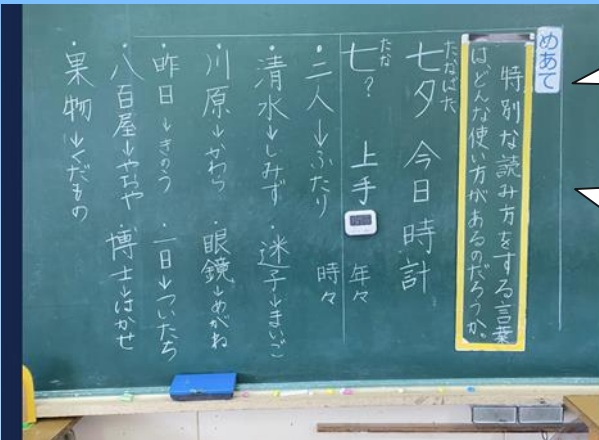 めあて
特別な読み方をする言葉
は、どんな使い方があるのだろうか。
たなばた
七夕 今日 時計
たな
七? 上手 年々
時々
・二人→ふたり
・清水→しみず ・迷子→まいご
・川原→かわら ・眼鏡→めがね
・昨日→きのう ・一日→ついたち
・八百屋→やおや ・博士→はかせ
・果物→くだもの